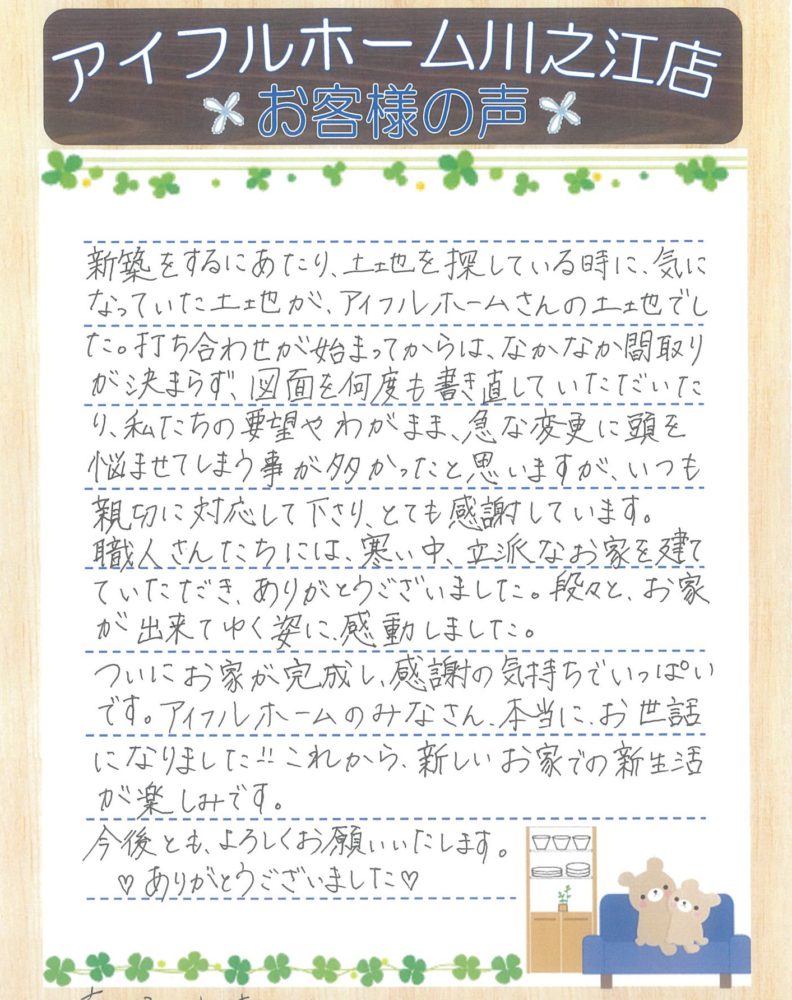 アイフルホーム川之江店
お客様の声
新築をするにあたり、土地を探している時に、気に
なっていた土地が、アイフルホームさんの土地でし
た。打ち合わせが始まってからは、なかなか間取り
が決まらず、図面を何度も書き直していただいた
り、私たちの要望やわがまま、急な変更に頭を
悩ませてしまう事が多かったと思いますが、いつも
親切に対応して下さり、とても感謝しています。
職人さんたちには、寒い中、立派なお家を建て
ていただき、ありがとうございました。段々と、お家
が出来てゆく姿に、感動しました。
ついにお家が完成し、感謝の気持ちでいっぱい
です。アイフルホームのみなさん、本当に、お世話
になりました!! これから、新しいお家での新生活
が楽しみです。
今後とも、よろしくお願いいたします。
♡ありがとうございました♡